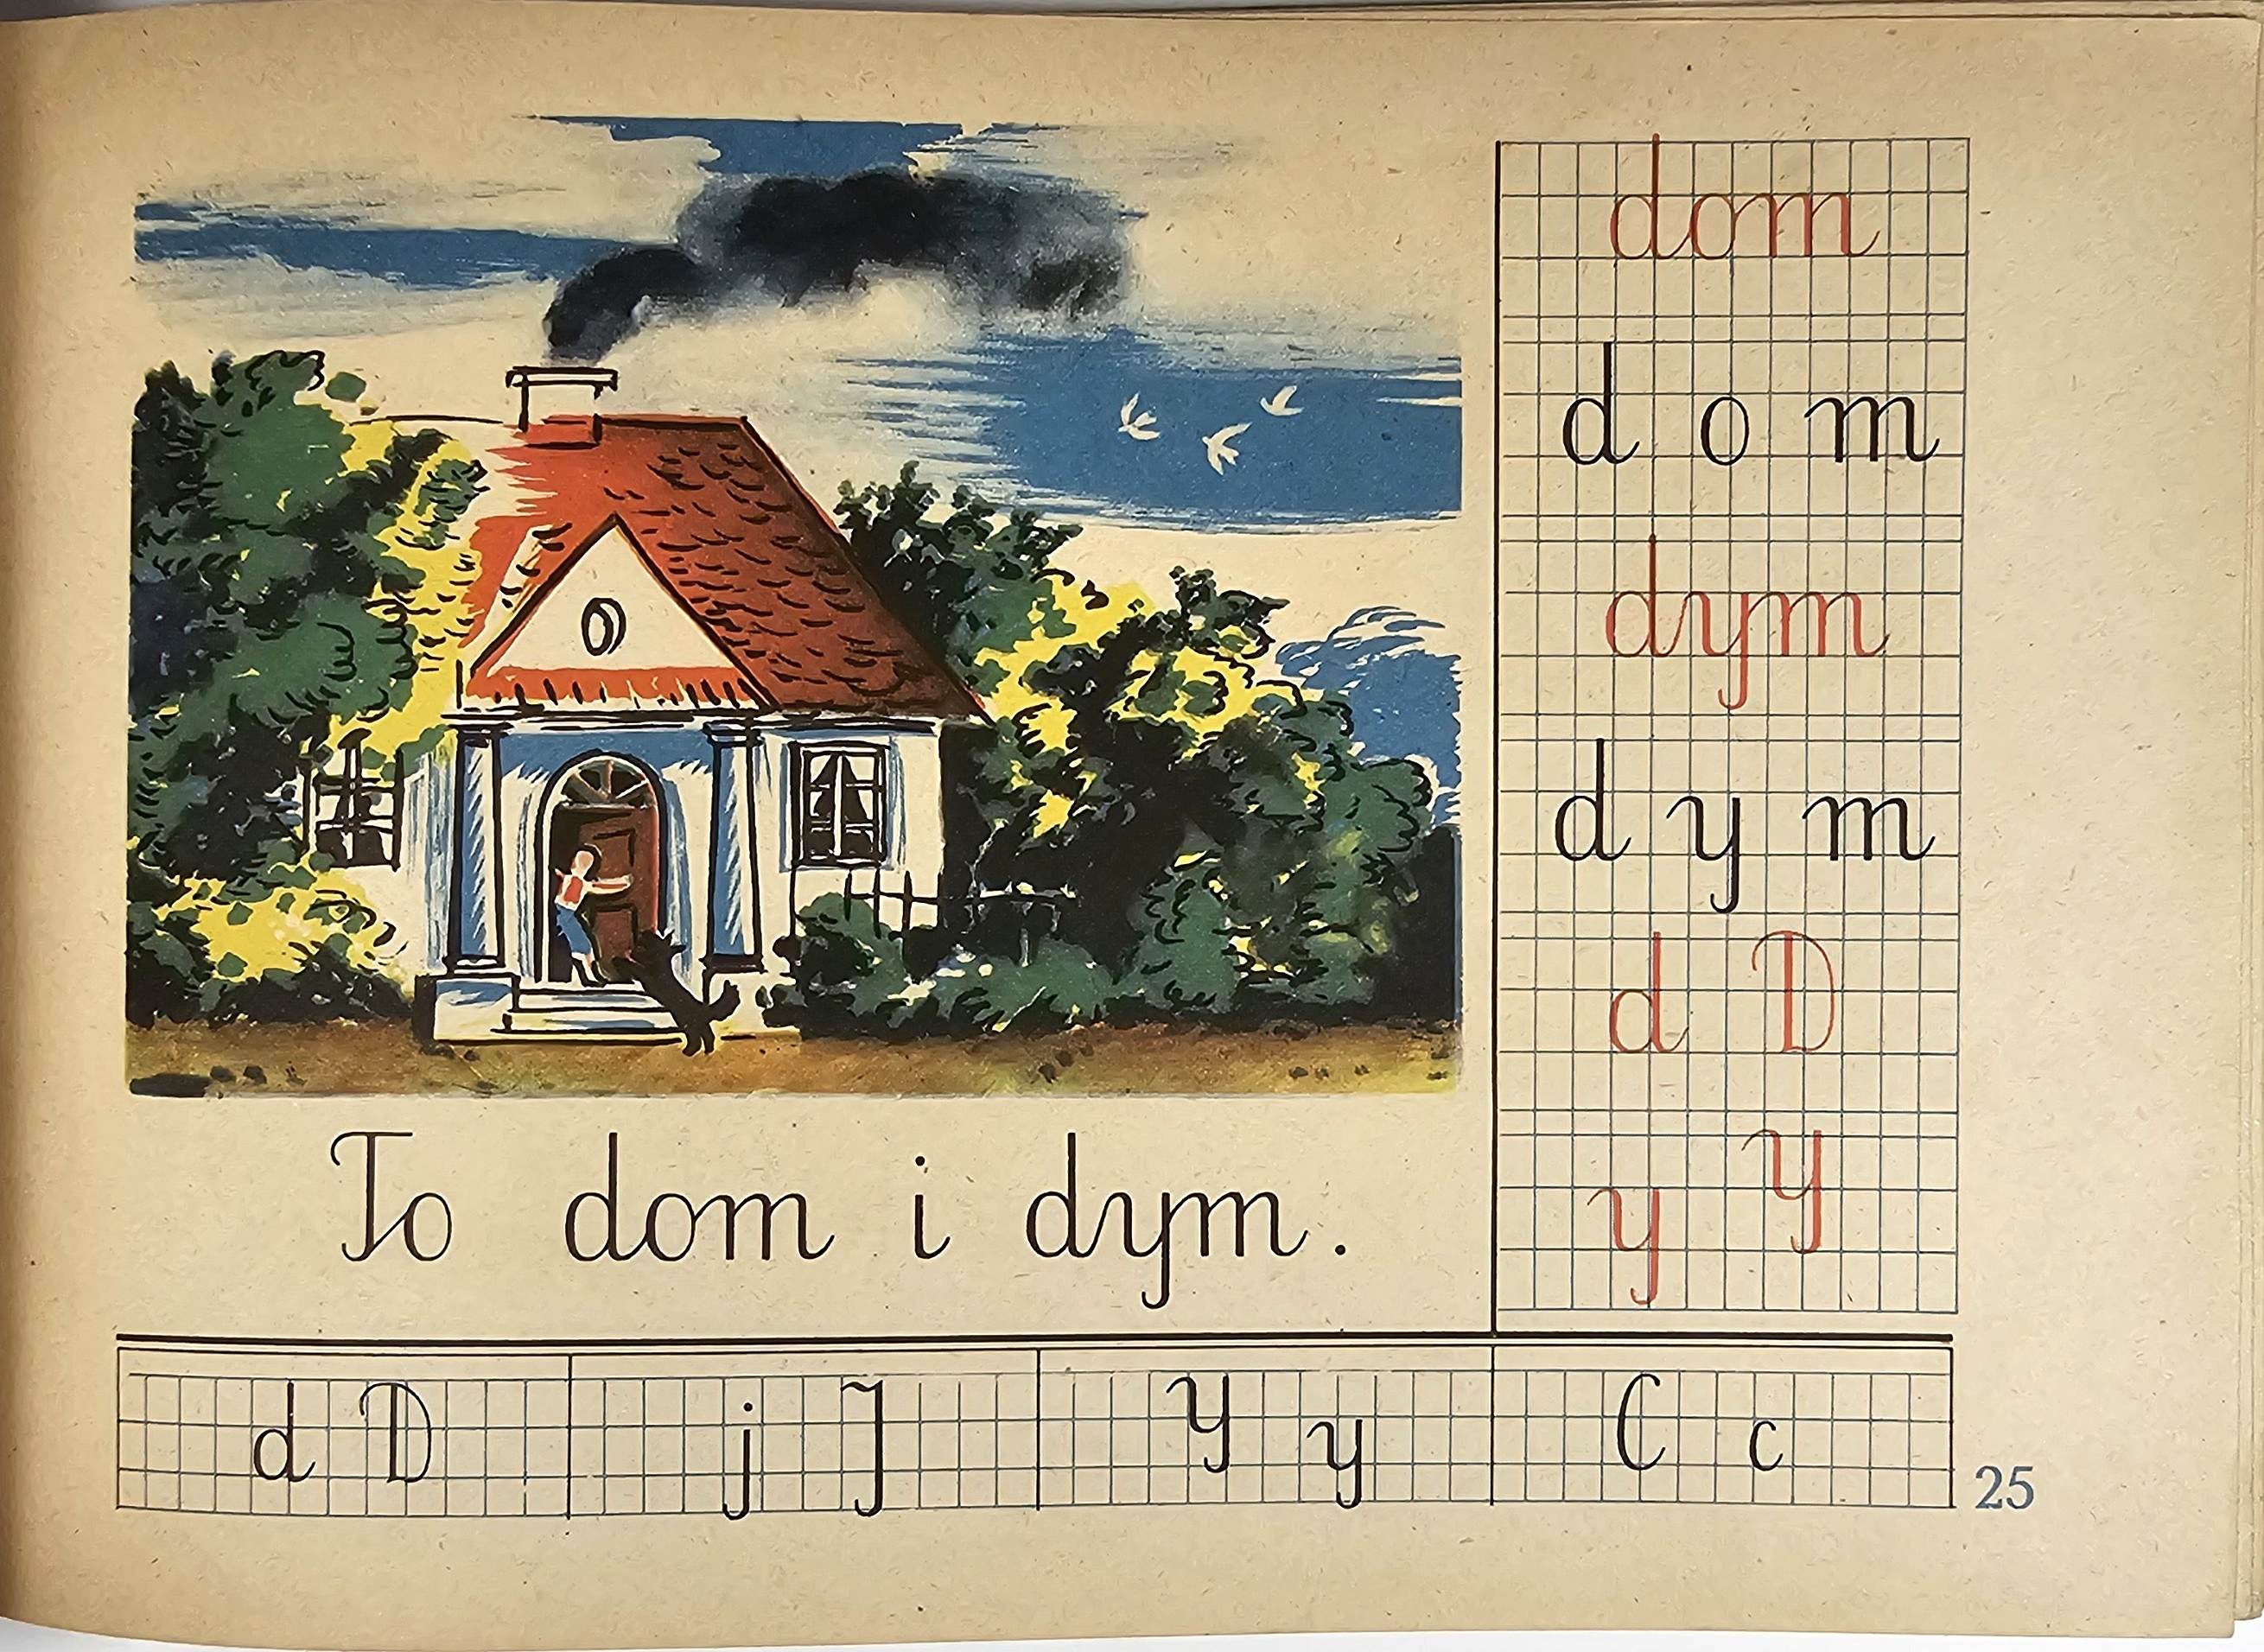 To dom i dym.
dom
d o m
dym
d y m
d D
y Y
d D j J Y y C c
25